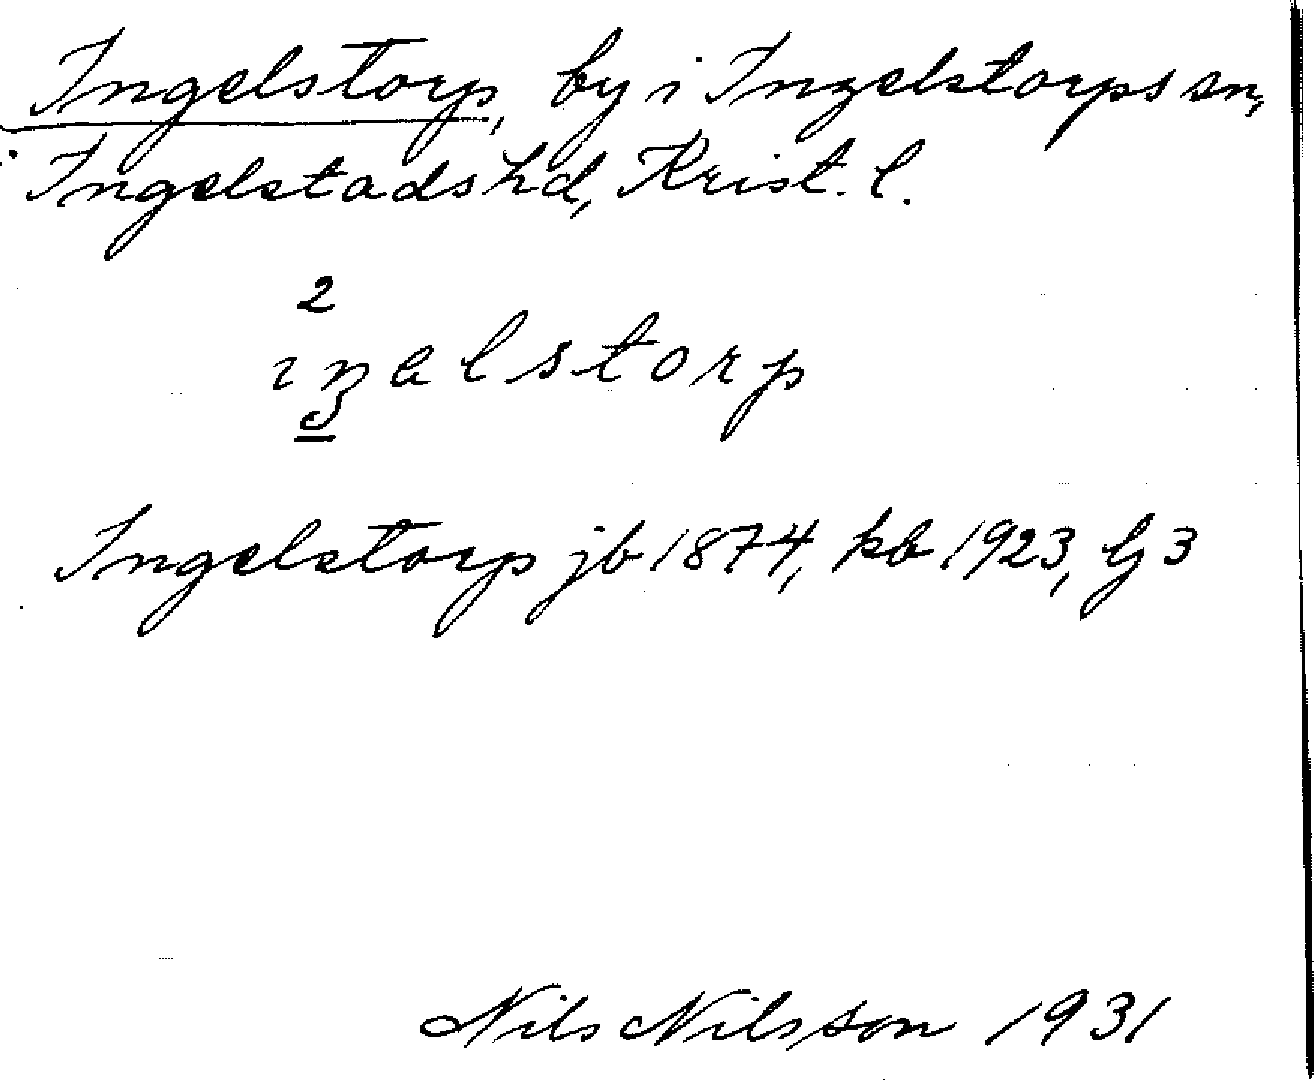 Ingelstorp, by i Ingelstorps sn,
Ingelstads hd, Krist. l.
2
ıŋəlstorp
3
Ingelstorp jb 1874, kb 1923, Gj 3
Nils Nilsson 1931